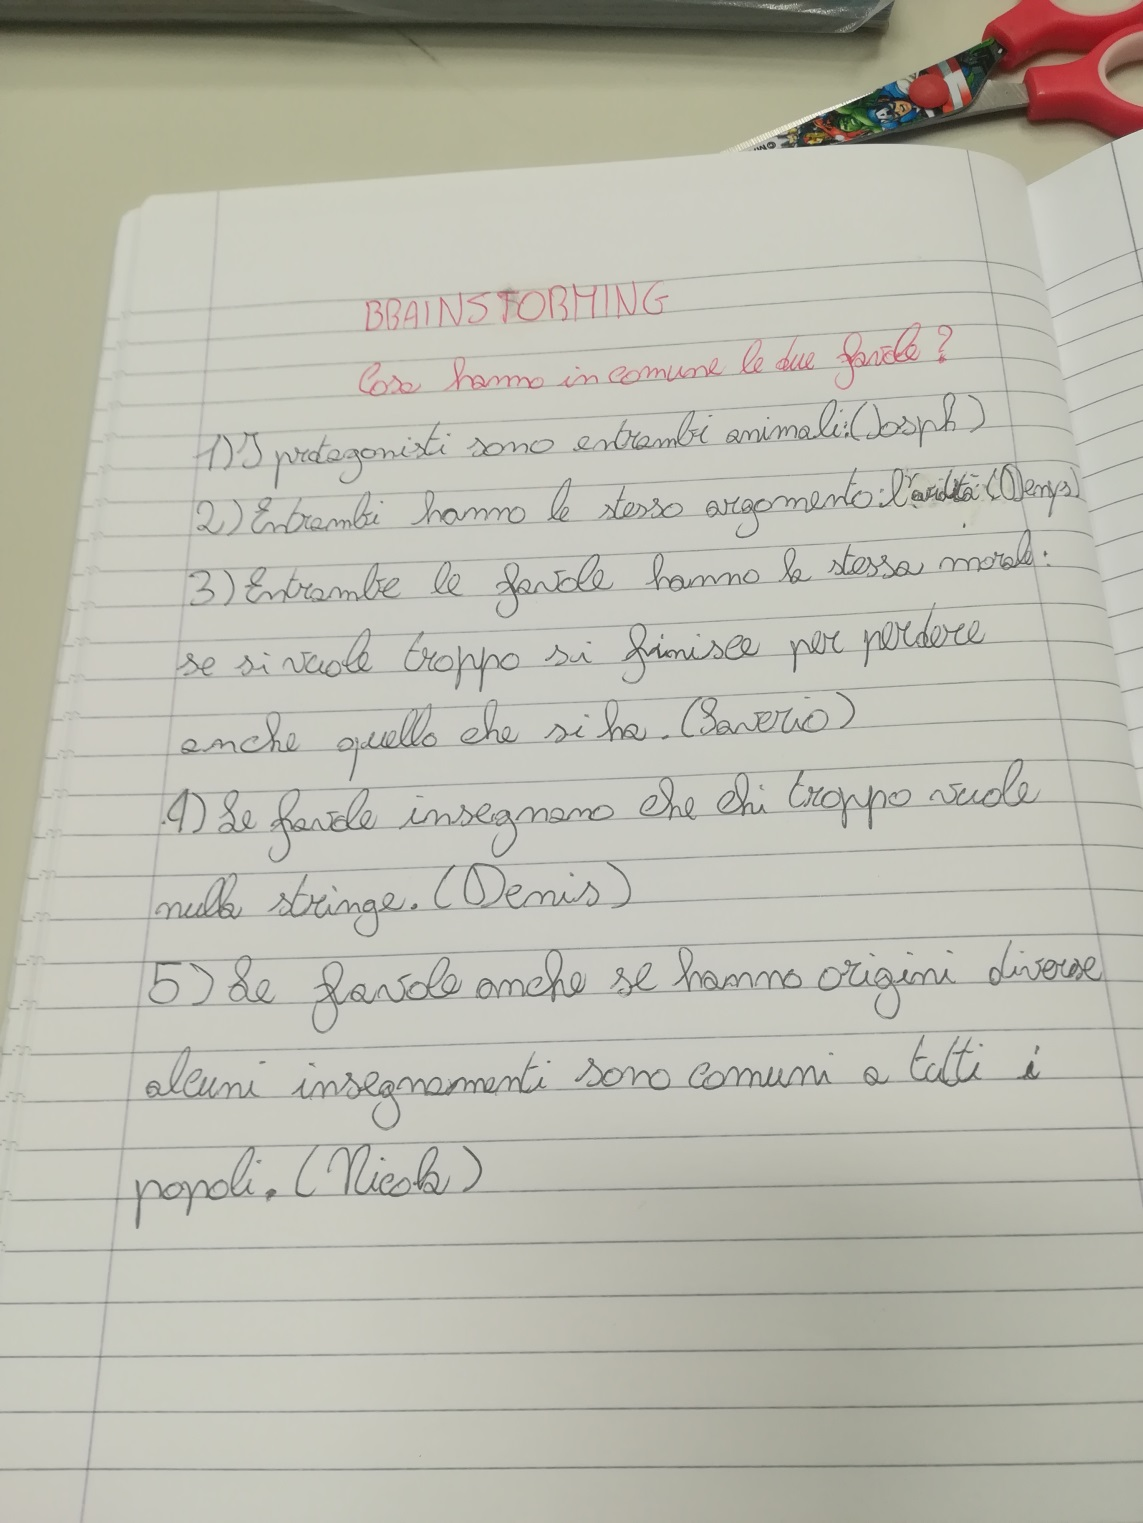 BRAINSTORMING
Cosa hanno in comune le due favole?
1) I protagonisti sono entrambi animali. (Josph)
2) Entrambi hanno lo stesso argomento: l'avidità. (Denys)
3) Entrambe le favole hanno la stessa morale:
se si vuole troppo si finisce per perdere
anche quello che si ha. (Saverio)
4) Le favole insegnano che chi troppo vuole
nulla stringe. (Denis)
5) Le favole anche se hanno origini diverse
alcuni insegnamenti sono comuni a tutti i
popoli. (Nicola)